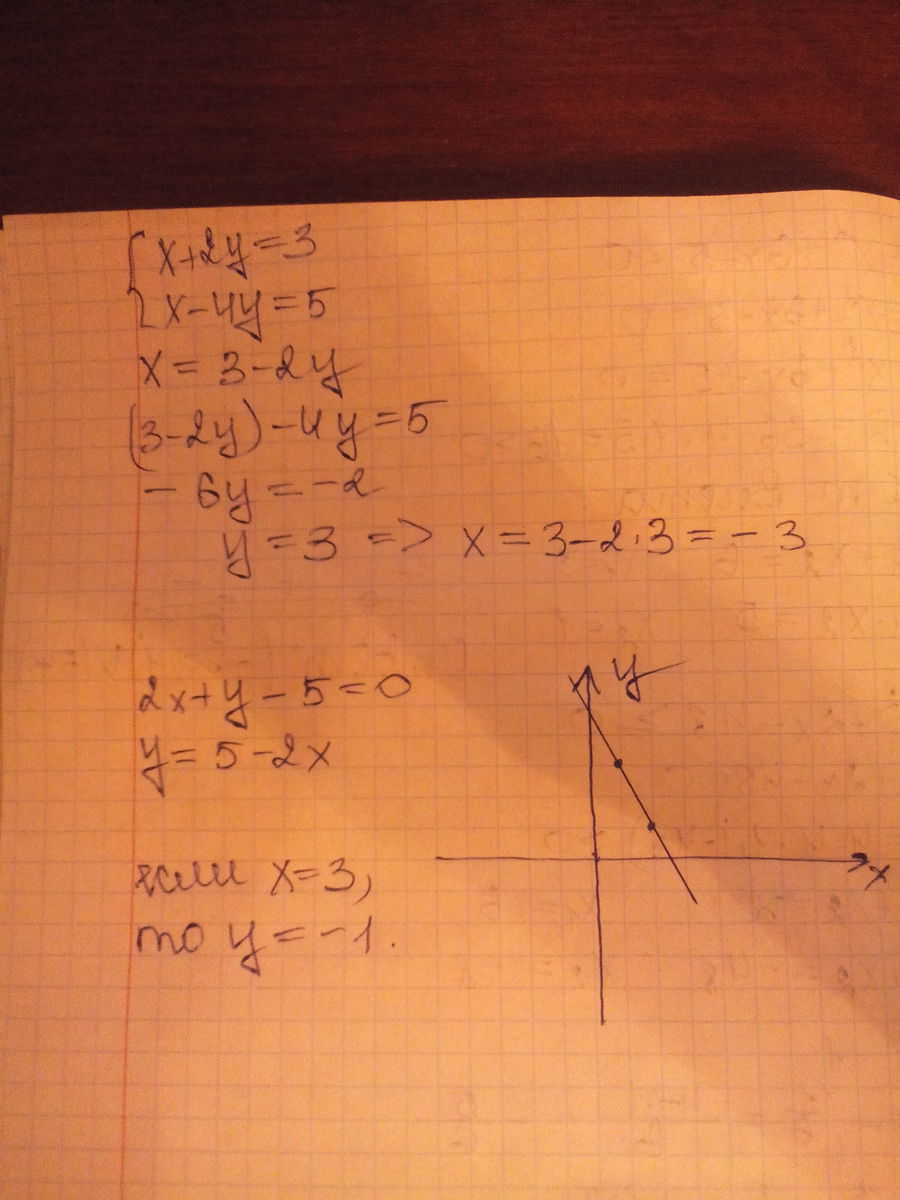 {x+2y=3
x-4y=5
x = 3-2y
(3-2y)-4y=5
- 6y = -2
y = 3 => x = 3-2·3 = - 3
2x+y-5=0
y= 5-2x
y
x
если x=3,
то y = -1.